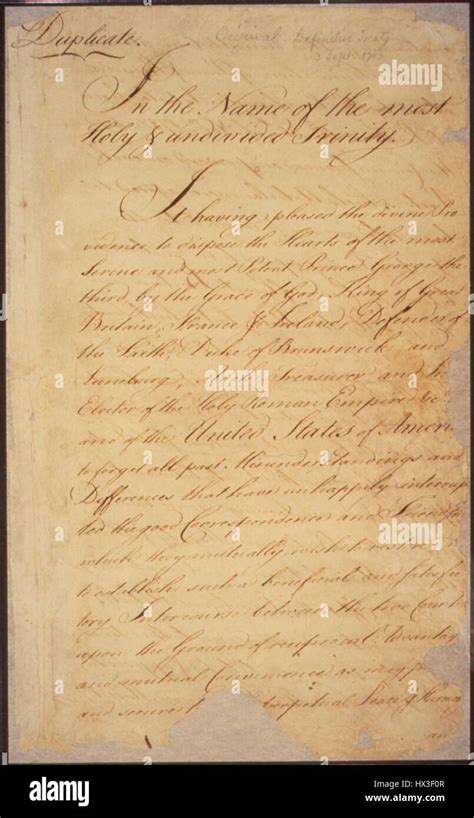 Duplicate.
Original Definitive Treaty
3 Sept. 1783
In the Name of the most
Holy & undivided Trinity.
It having pleased the divine Pro
vidence to dispose the Hearts of the most
Serene and most Potent Prince George the
third, by the Grace of God, King of Great
Britain, France & Ireland, Defender of
the Faith, Duke of Brunswick and
Lunebourg, Arch Treasurer and
Elector of the Holy Roman Empire &c
and of the United States of Ameri
to forget all past Misunderstandings and
Differences that have unhappily interrup
ted the good Correspondence and Friend
which they mutually wish to rest
to establish such a beneficial and satisfac
tory Intercourse between the two Count
upon the Ground of reciprocal Advantag
and mutual Convenience as may
and secure perpetual Peace & Harmon
and
alamy
a
alamy stock photo
HX3F0R
www.alamy.com